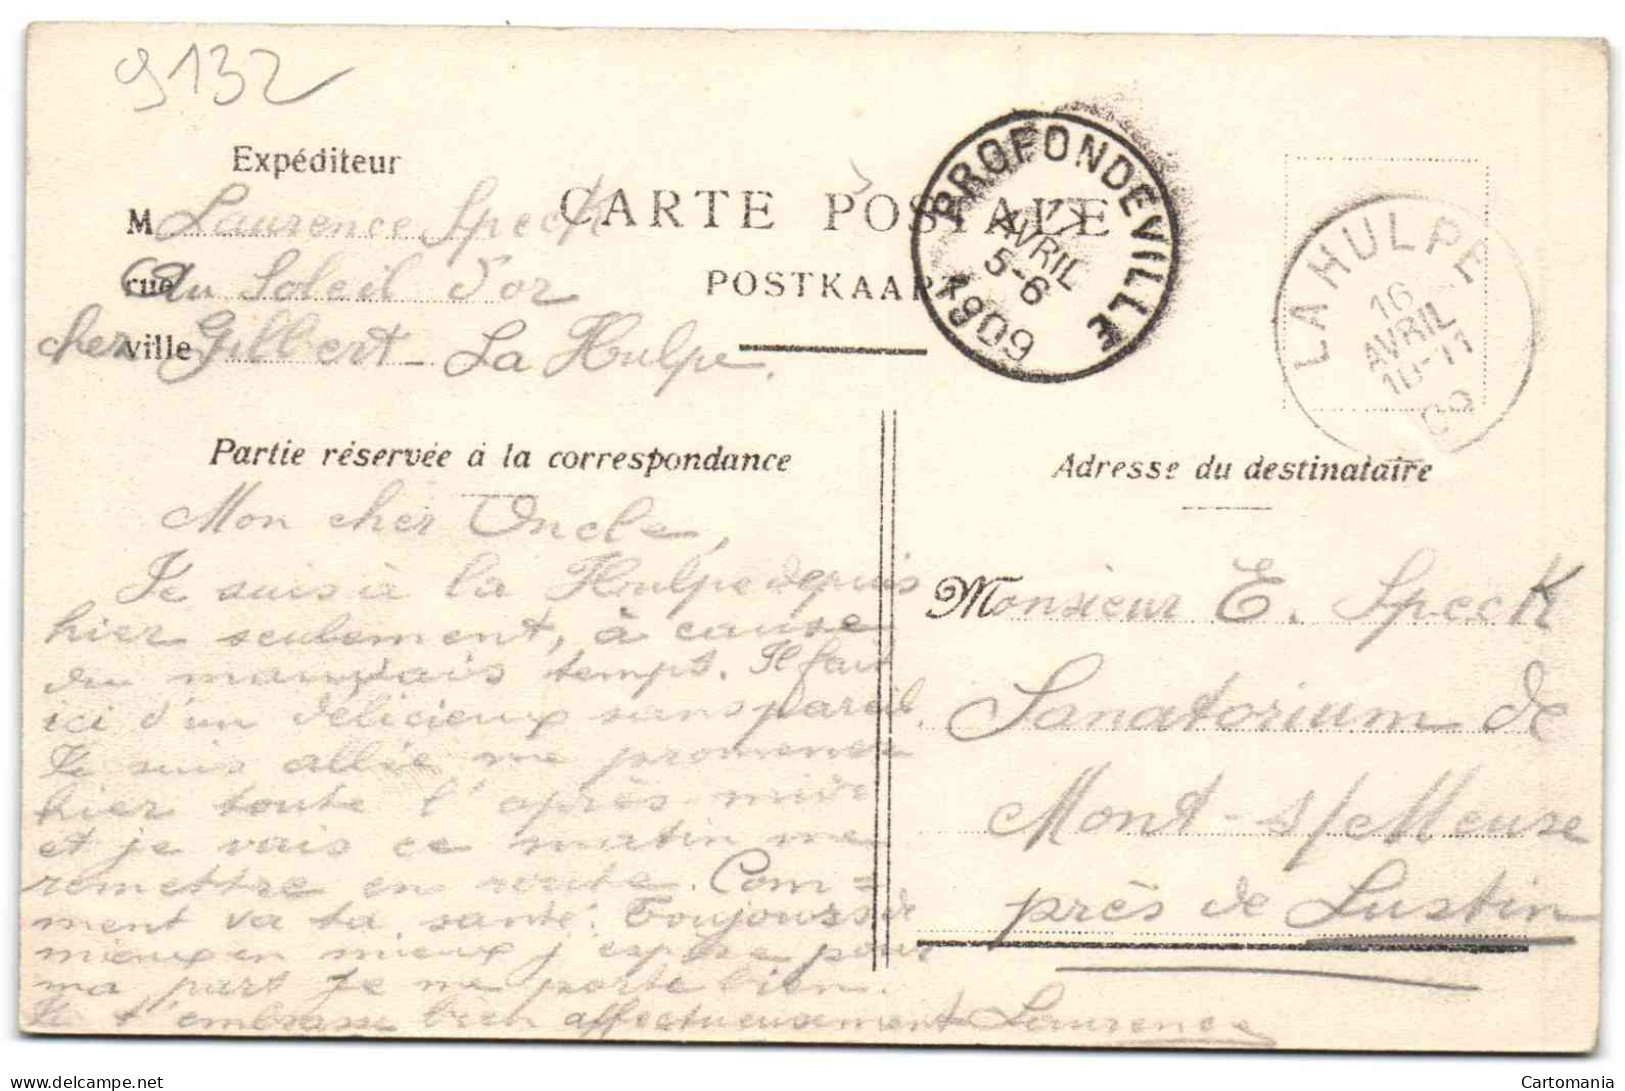 9132
Expéditeur
M Laurence Speck
rue au Soleil d'or
ville chez Gilbert - La Hulpe.
CARTE POSTALE
POSTKAART
PROFONDEVILLE
AVRIL
5-6
1909
LA HULPE
16
AVRIL
10-11
09
Partie réservée à la correspondance
Mon cher Oncle,
Je suis à la Hulpe depuis
hier seulement, à cause
du mauvais temps. Il fait
ici d'un délicieux sans pareil.
Je suis allée me promener
hier toute l'après-midi
et je vais ce matin me
remettre en route. Com=
ment va ta santé. Toujours de
mieux en mieux j'espère pour
ma part Je me porte bien.
Je t'embrasse bien affectueusement Laurence
Adresse du destinataire
Monsieur E. Speck
Sanatorium de
Mont-s/Meuse
près de Lustin
delcampe.net
Cartomania